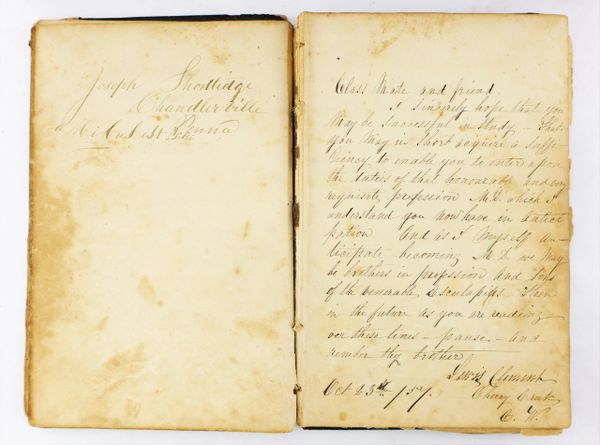 Joseph Shortlidge
Chandlerville
Penna
Class Mate and friend
I sincerely hope that you
May be successful in study, - That
you May in short acquire a suffi-
ciency to enable you to enter upon
the duties of that honourable and very
requisite profession M.D. which I
understand you now have in antici
pation And as I Myself an-
ticipate becoming M.D. we May
be brothers in profession and Sons
of the venerable Esculapius. Then
in the future as you are reading
over these lines - pause - and
rember thy brother,
Lewis Clement
Oct 23rd /57. Cherry Creek
C. W.